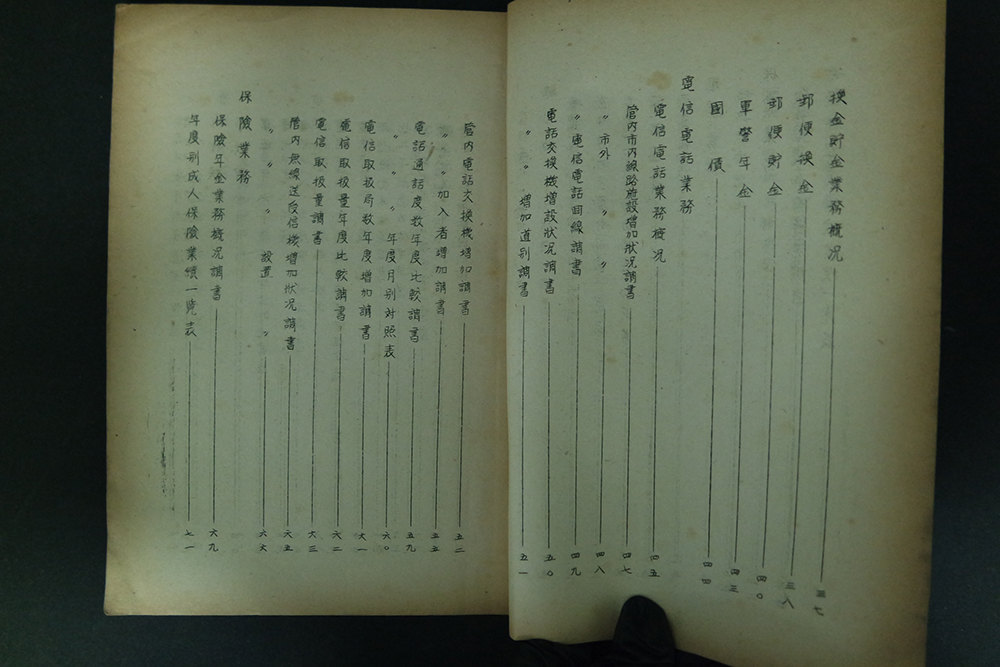 換金貯金業務概況 三七
郵便換金 三八
郵便貯金 四〇
軍警年金 四三
國債 四四
電信電話業務
電信電話業務概况 四五
管内市内線路施設增加狀况調書 四七
〃市外〃〃 四八
〃電信電話回線調書 四九
電話交换機增設狀况調書 五〇
〃〃增加道別調書 五一
管内電話交换機增加調書 五二
〃〃加入者增加調書 五五
電話通話度数年度比較調書 五九
〃〃年度月别対照表 六〇
電信取扱局数年度增加調書 六一
電信取扱量年度比較調書 六二
電信取扱量調書 六三
管内無線送受信機增加狀况調書 六五
〃〃〃設置〃 六六
保險業務
保險年金業務概况調書 六九
年度别成人保險業績一覧表 七一